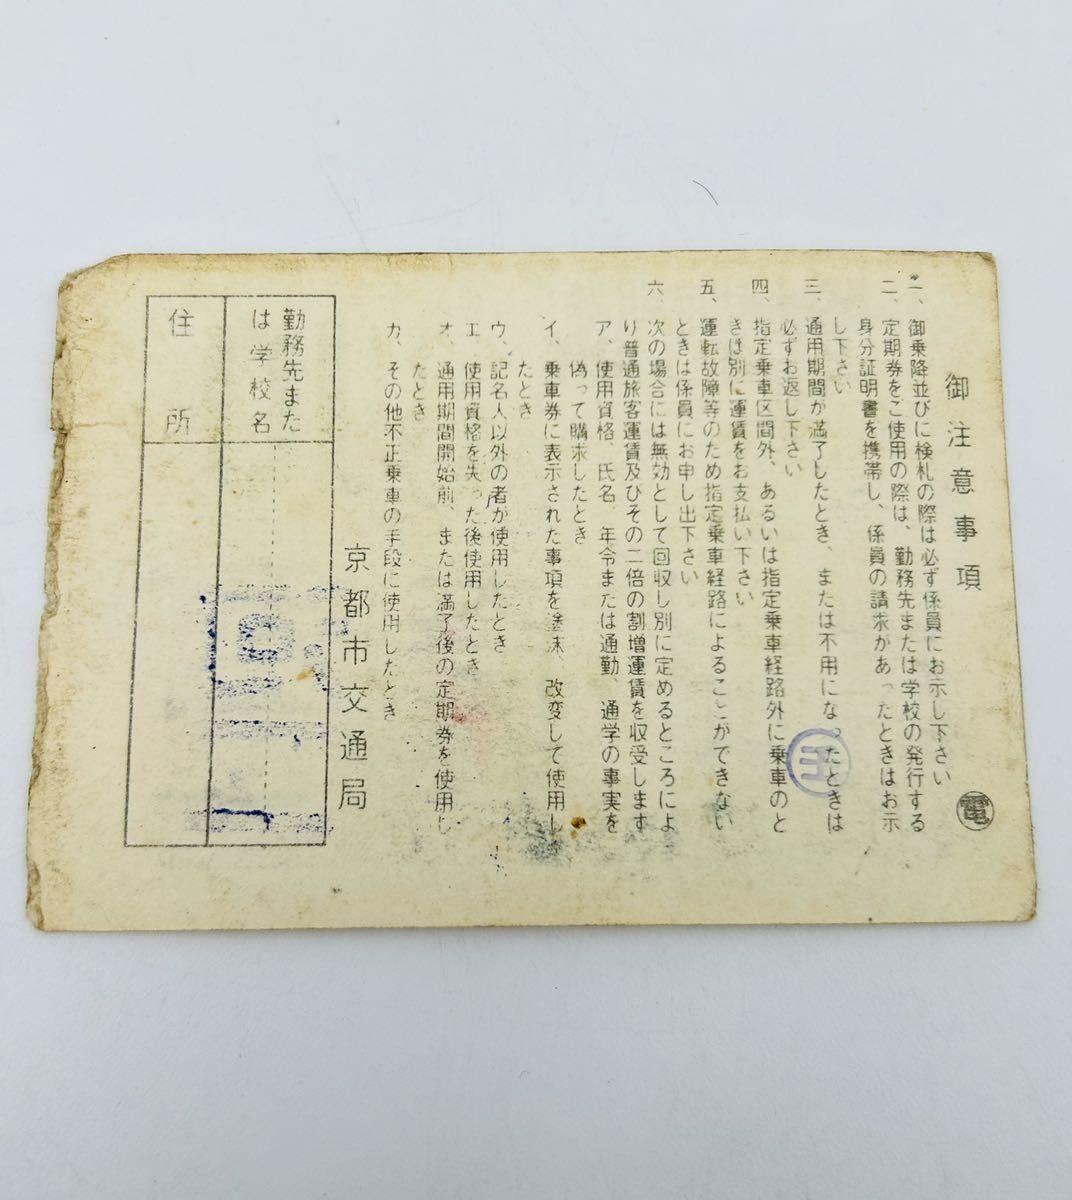 御注意事項
一、御乗降並びに検札の際は必ず係員にお示し下さい
二、定期券をご使用の際は、勤務先または学校の発行する
身分証明書を携帯し、係員の請求があったときはお示
し下さい
三、通用期間が満了したとき、または不用になったときは
必ずお返し下さい
四、指定乗車区間外、あるいは指定乗車経路外に乗車のと
きは別に運賃をお支払い下さい
五、運転故障等のため指定乗車経路によることができない
ときは係員にお申し出下さい
六、次の場合には無効として回収し別に定めるところによ
り普通旅客運賃及びその二倍の割増運賃を収受します
ア、使用資格、氏名、年令または通勤、通学の事実を
偽って購求したとき
イ、乗車券に表示された事項を塗抹、改変して使用し
たとき
ウ、記名人以外の者が使用したとき
エ、使用資格を失った後使用したとき
オ、通用期間開始前、または満了後の定期券を使用し
たとき
カ、その他不正乗車の手段に使用したとき
京都市交通局
勤務先また
は学校名
住所
電